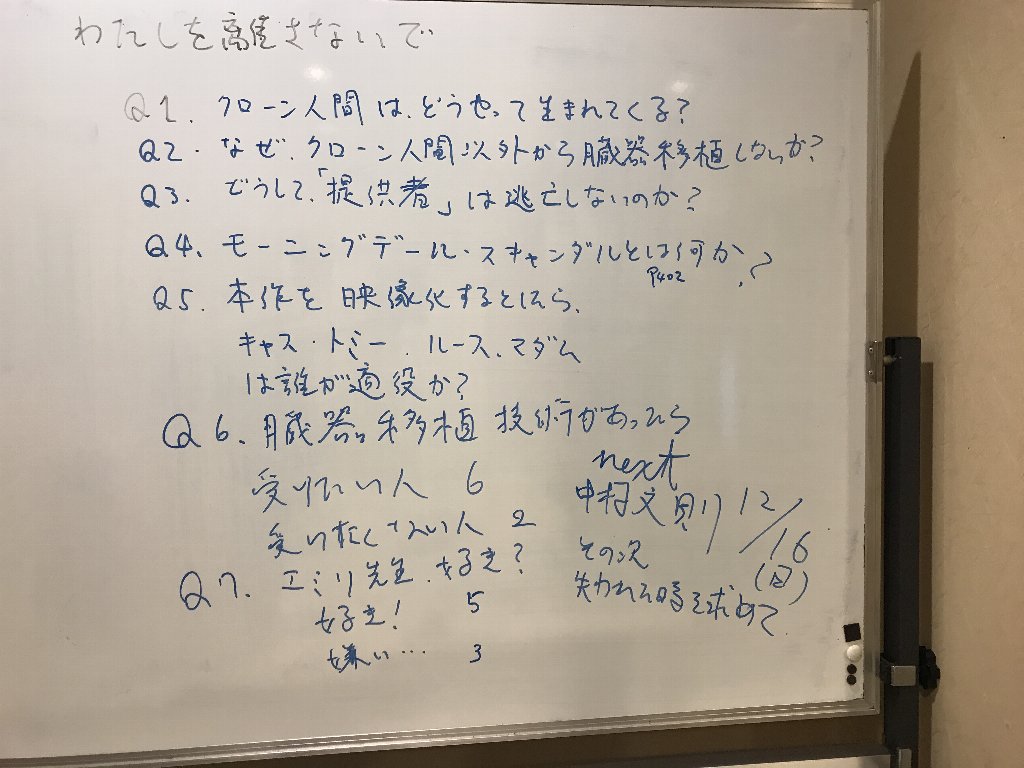 わたしを離さないで
Q1. クローン人間は、どうやって生まれてくる?
Q2. なぜ、クローン人間以外から臓器移植しないか?
Q3. どうして、「提供者」は逃亡しないのか?
Q4. モーニングデール・スキャンダルとは何か?
P402
Q5. 本作を映像化するとしたら、
キャス・トミー、ルース、マダム
は誰が適役か?
Q6. 臓器移植技術があったら
受けたい人 6
受けたくない人 2
Q7. エミリ先生、好き?
好き! 5
嫌い… 3
next
中村文則 12/16
(日)
その次
失われた時を求めて